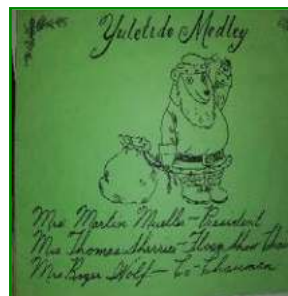 Yuletide Medley
Mrs. Martin Mueller - President
Mrs Thomas Sherrier - Flower Show Chair
Mrs Roger Wolf - Co-Chairman